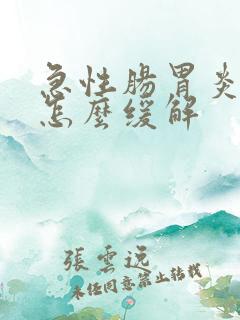 急性腸胃炎
怎麼缓解
張雲远
未经同意禁止转载